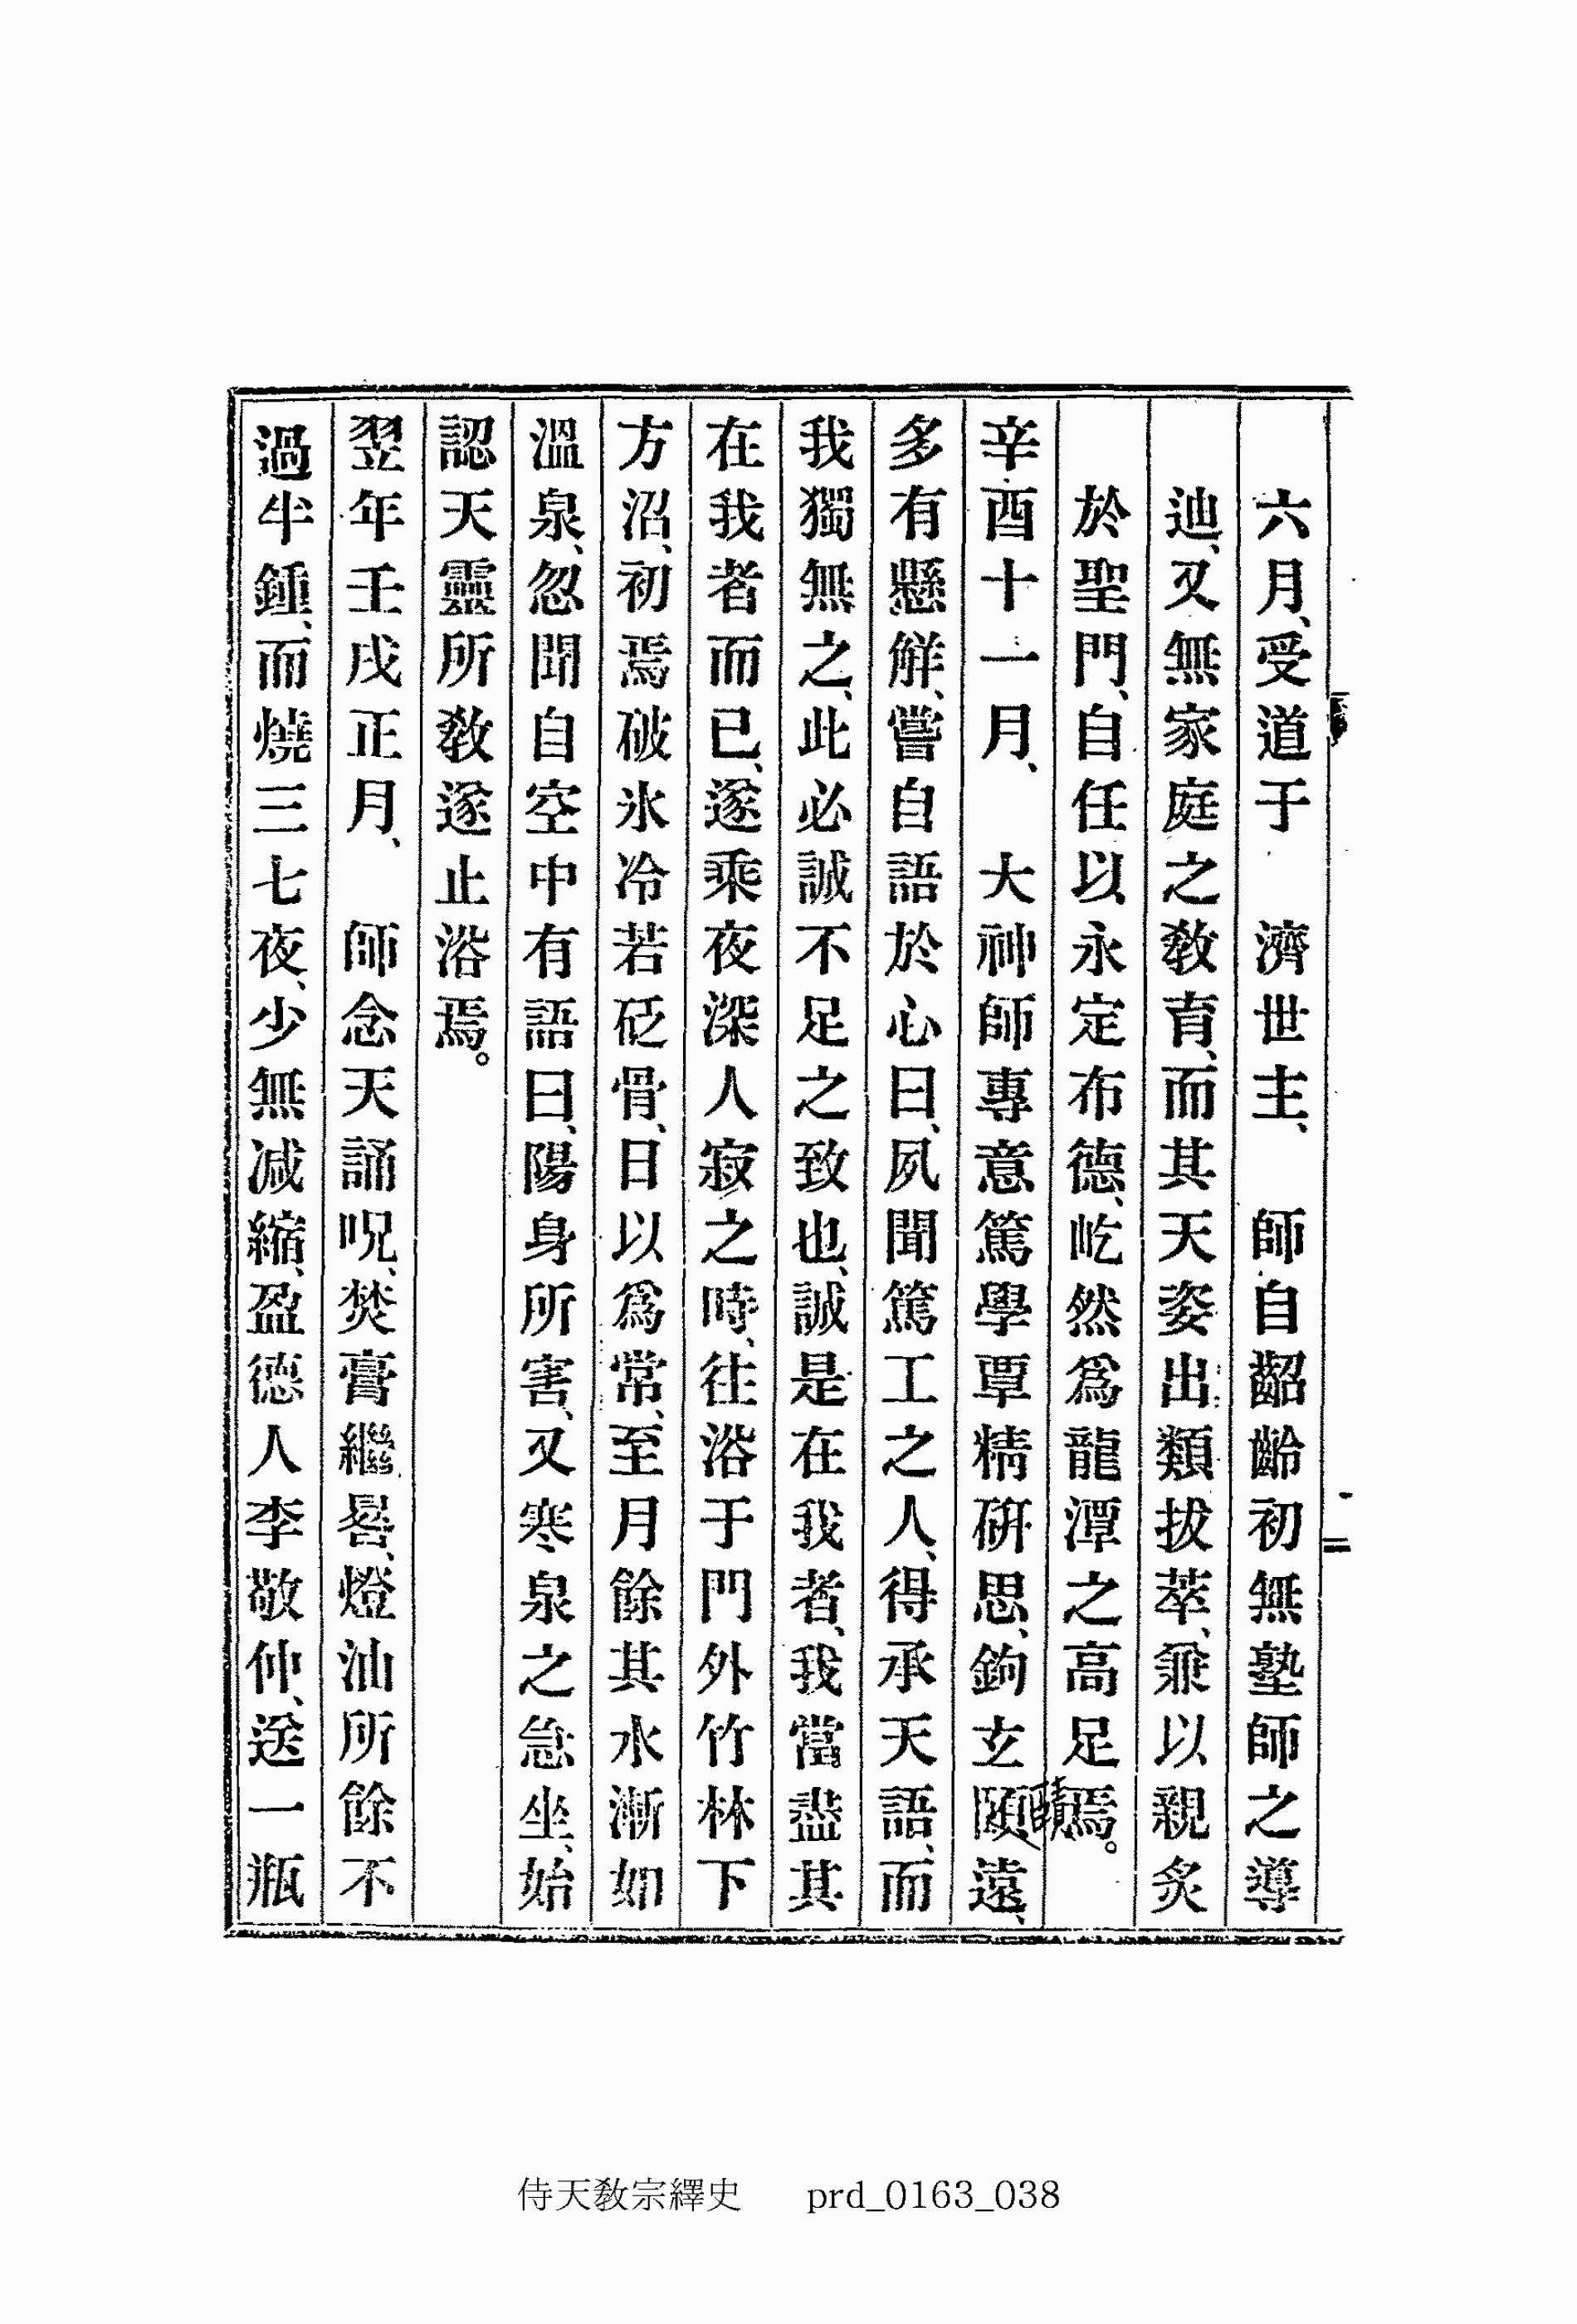 六月、受道于　濟世主、　師自齠齡初無塾師之導
迪、又無家庭之敎育、而其天姿出類拔萃、兼以親炙
於聖門、自任以永定布德、屹然爲龍潭之高足焉。
辛酉十一月、　大神師專意篤學覃精硏思、鉤玄頤遠、
賾
多有懸解、嘗自語於心曰、夙聞篤工之人、得承天語、而
我獨無之、此必誠不足之致也、誠是在我者、我當盡其
在我者而已、遂乘夜深人寂之時、往浴于門外竹林下
方沼、初焉破氷冷若砭骨、日以爲常、至月餘其水漸如
溫泉、忽聞自空中有語曰、陽身所害、又寒泉之急坐、始
認天靈所敎遂止浴焉。
翌年壬戌正月、　師念天誦呪、焚膏繼晷、燈油所餘不
過半鍾、而燒三七夜、少無減縮、盈德人李敬仲、送一瓶
侍天敎宗繹史　prd_0163_038